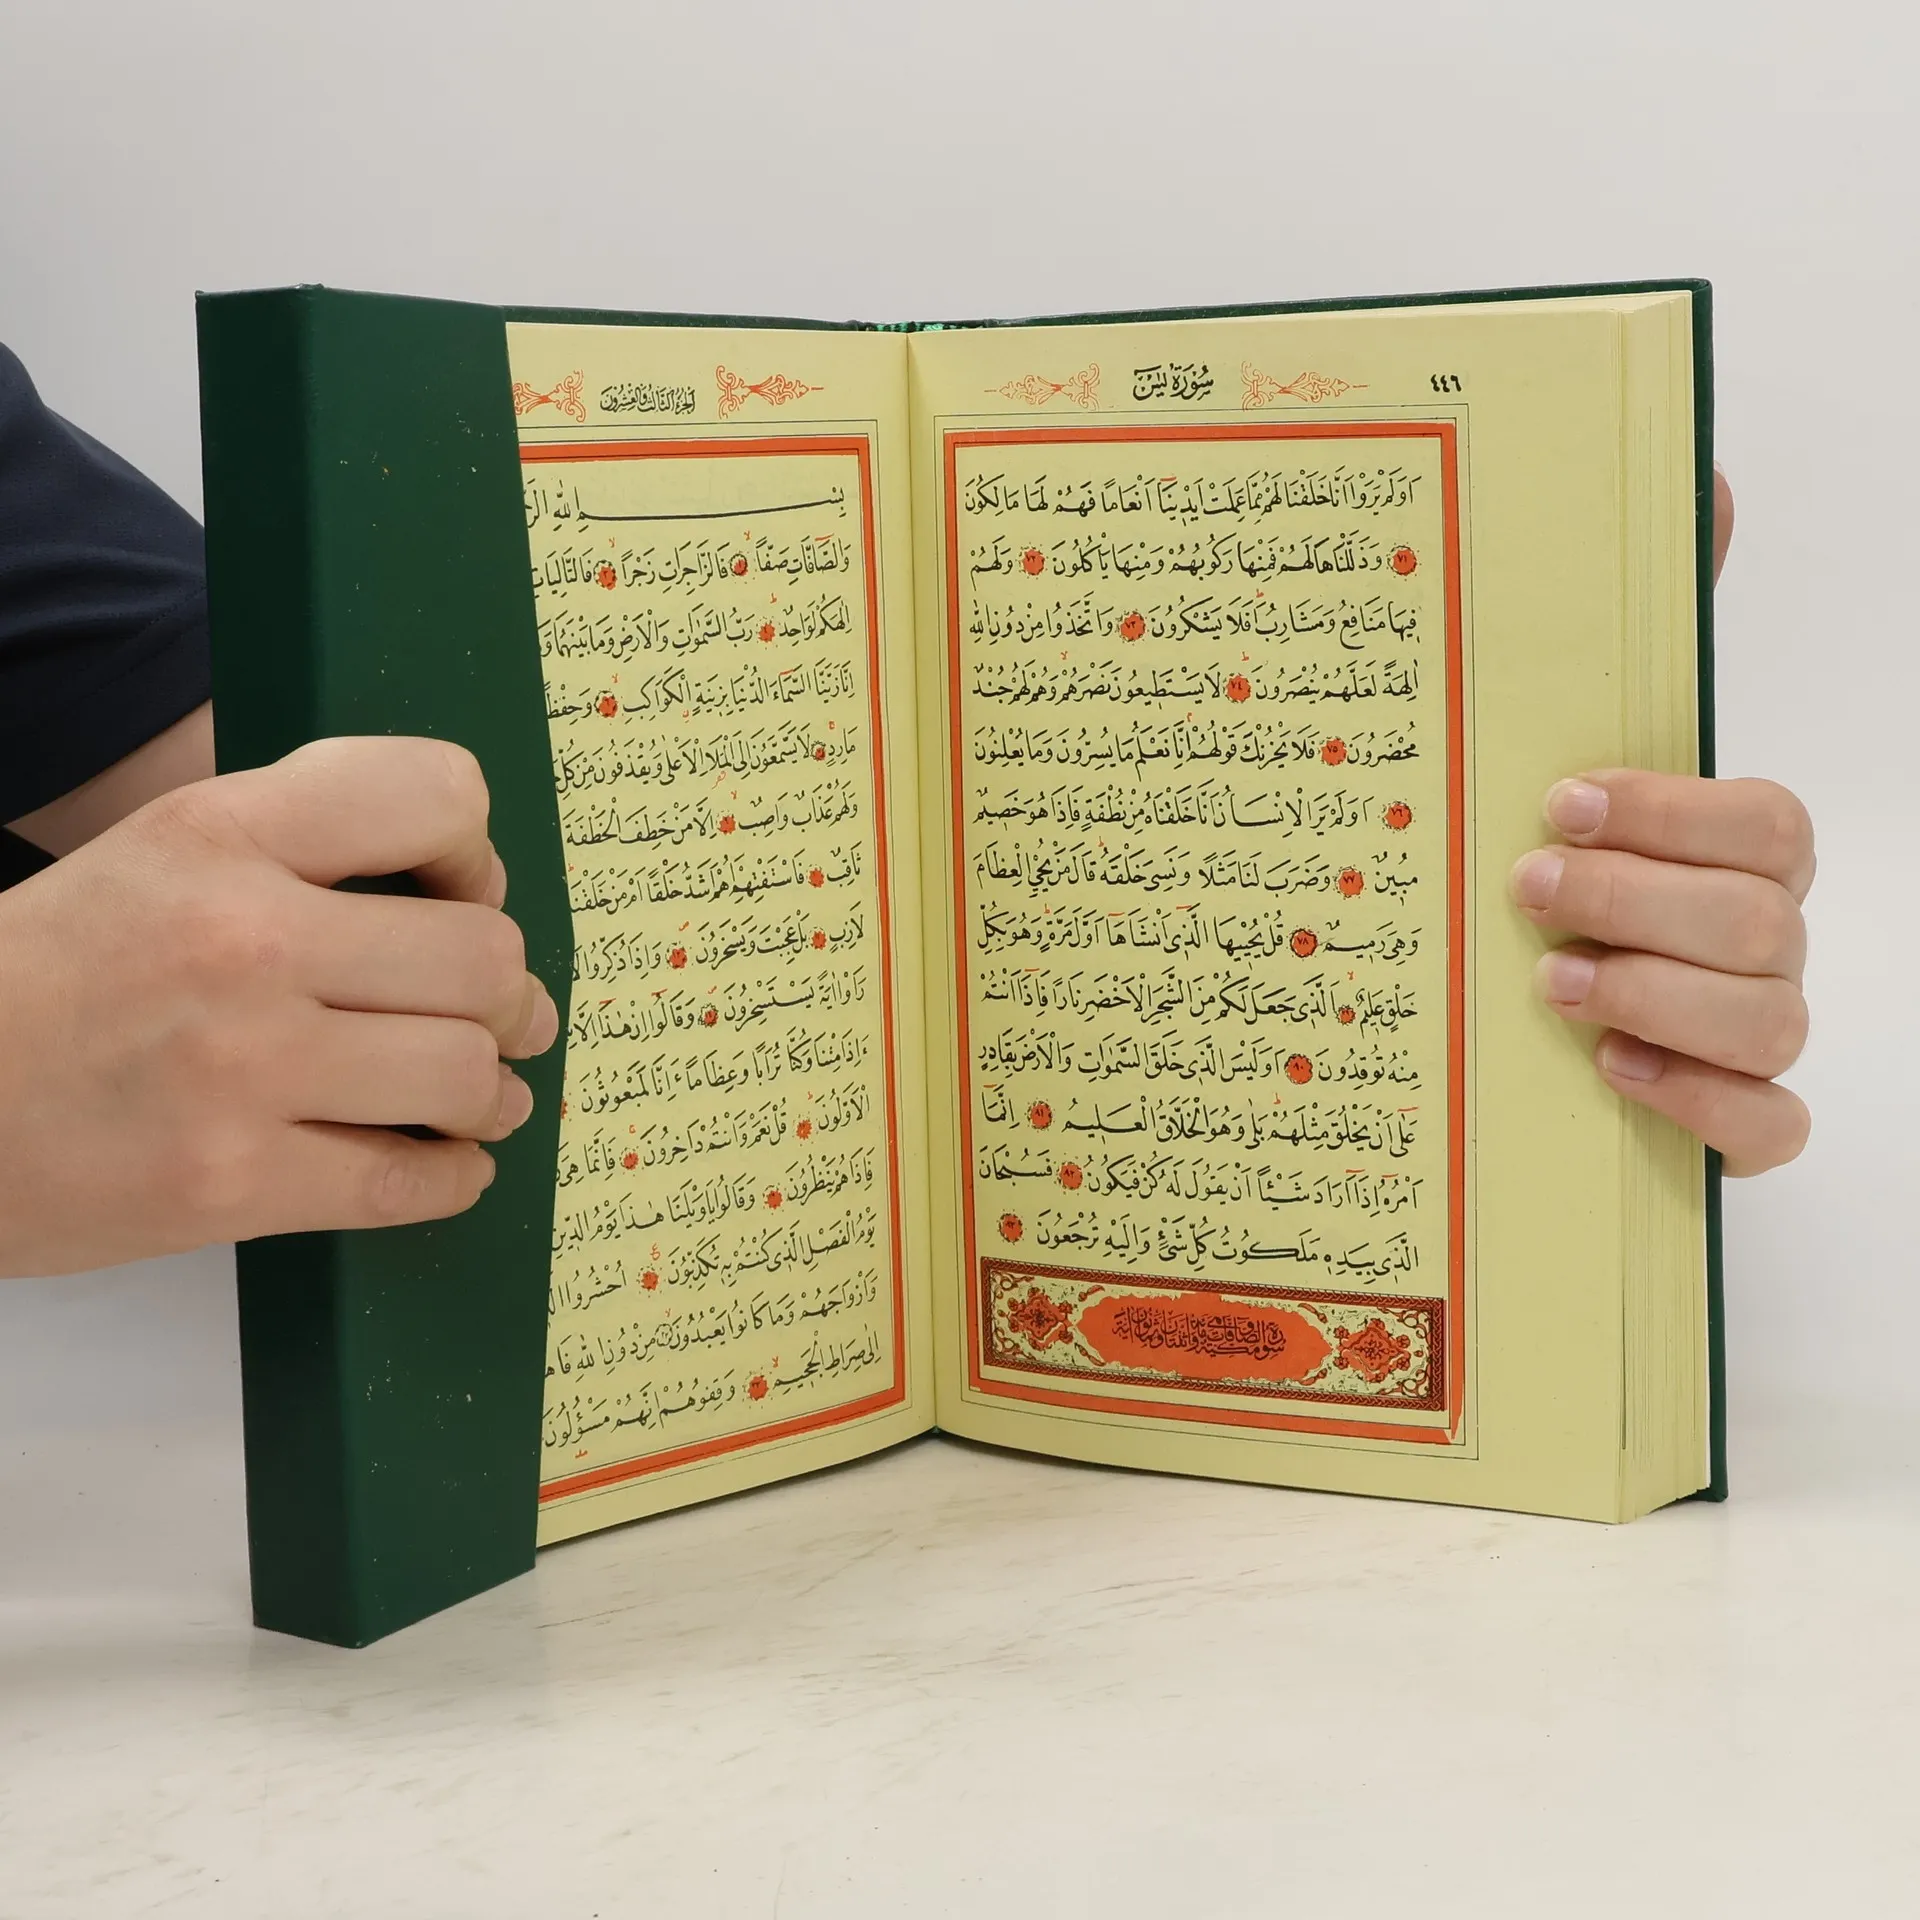 ٤٤٦
سُورَةُ يٰسٓ
اَوَلَمْ يَرَوْا اَنَّا خَلَقْنَا لَهُمْ مِمَّا عَمِلَتْ اَيْدٖينَٓا اَنْعَامًا فَهُمْ لَهَا مَالِكُونَ
﴿٧١﴾ وَذَلَّلْنَاهَا لَهُمْ فَمِنْهَا رَكُوبُهُمْ وَمِنْهَا يَأْكُلُونَ ﴿٧٢﴾ وَلَهُمْ
فٖيهَا مَنَافِعُ وَمَشَارِبُ اَفَلَا يَشْكُرُونَ ﴿٧٣﴾ وَاتَّخَذُوا مِنْ دُونِ اللّٰهِ
اٰلِهَةً لَعَلَّهُمْ يُنْصَرُونَ ﴿٧٤﴾ لَا يَسْتَطٖيعُونَ نَصْرَهُمْ وَهُمْ لَهُمْ جُنْدٌ
مُحْضَرُونَ ﴿٧٥﴾ فَلَا يَحْزُنْكَ قَوْلُهُمْ اِنَّا نَعْلَمُ مَا يُسِرُّونَ وَمَا يُعْلِنُونَ
﴿٧٦﴾ اَوَلَمْ يَرَ الْاِنْسَانُ اَنَّا خَلَقْنَاهُ مِنْ نُطْفَةٍ فَاِذَا هُوَ خَصٖيمٌ
مُبٖينٌ ﴿٧٧﴾ وَضَرَبَ لَنَا مَثَلًا وَنَسِىَ خَلْقَهُ قَالَ مَنْ يُحْيِ الْعِظَامَ
وَهِىَ رَمٖيمٌ ﴿٧٨﴾ قُلْ يُحْيٖيهَا الَّذٖى اَنْشَاَهَٓا اَوَّلَ مَرَّةٍ وَهُوَ بِكُلِّ
خَلْقٍ عَلٖيمٌ اَلَّذٖى جَعَلَ لَكُمْ مِنَ الشَّجَرِ الْاَخْضَرِ نَارًا فَاِذَٓا اَنْتُمْ
مِنْهُ تُوقِدُونَ اَوَلَيْسَ الَّذٖى خَلَقَ السَّمٰوَاتِ وَالْاَرْضَ بِقَادِرٍ
عَلٰٓى اَنْ يَخْلُقَ مِثْلَهُمْ بَلٰى وَهُوَ الْخَلَّاقُ الْعَلٖيمُ اِنَّمَٓا
اَمْرُهُٓ اِذَٓا اَرَادَ شَيْئًا اَنْ يَقُولَ لَهُ كُنْ فَيَكُونُ فَسُبْحَانَ
الَّذٖى بِيَدِهٖ مَلَكُوتُ كُلِّ شَىْءٍ وَاِلَيْهِ تُرْجَعُونَ
سورة الصافات مكية وهى مائة واثنتان وثمانون اية
اَلْجُزْءُ الثَّالِثُ وَالْعِشْرُونَ
بِسْمِ اللّٰهِ
وَالصَّٓافَّاتِ صَفًّا فَالزَّاجِرَاتِ زَجْرًا فَالتَّالِيَاتِ
اِلٰهَكُمْ لَوَاحِدٌ رَبُّ السَّمٰوَاتِ وَالْاَرْضِ وَمَا بَيْنَهُمَا
اِنَّا زَيَّنَّا السَّمَٓاءَ الدُّنْيَا بِزٖينَةٍ الْكَوَاكِبِ وَحِفْظًا
مَارِدٍ لَا يَسَّمَّعُونَ اِلَى الْمَلَاِ الْاَعْلٰى وَيُقْذَفُونَ مِنْ كُلِّ
وَلَهُمْ عَذَابٌ وَاصِبٌ اِلَّا مَنْ خَطِفَ الْخَطْفَةَ
ثَاقِبٌ فَاسْتَفْتِهِمْ اَهُمْ اَشَدُّ خَلْقًا اَمْ مَنْ خَلَقْنَا
لَازِبٍ بَلْ عَجِبْتَ وَيَسْخَرُونَ وَاِذَا ذُكِّرُوا
رَاَوْا اٰيَةً يَسْتَسْخِرُونَ وَقَالُٓوا اِنْ هٰذَٓا
ءَاِذَا مِتْنَا وَكُنَّا تُرَابًا وَعِظَامًا ءَاِنَّا لَمَبْعُوثُونَ
الْاَوَّلُونَ قُلْ نَعَمْ وَاَنْتُمْ دَاخِرُونَ فَاِنَّمَا هِىَ
فَاِذَا هُمْ يَنْظُرُونَ وَقَالُوا يَا وَيْلَنَا هٰذَا يَوْمُ الدّٖينِ
يَوْمُ الْفَصْلِ الَّذٖى كُنْتُمْ بِهٖ تُكَذِّبُونَ اُحْشُرُوا
وَاَزْوَاجَهُمْ وَمَا كَانُوا يَعْبُدُونَ مِنْ دُونِ اللّٰهِ
اِلٰى صِرَاطِ الْجَحٖيمِ وَقِفُوهُمْ اِنَّهُمْ مَسْؤُلُونَ